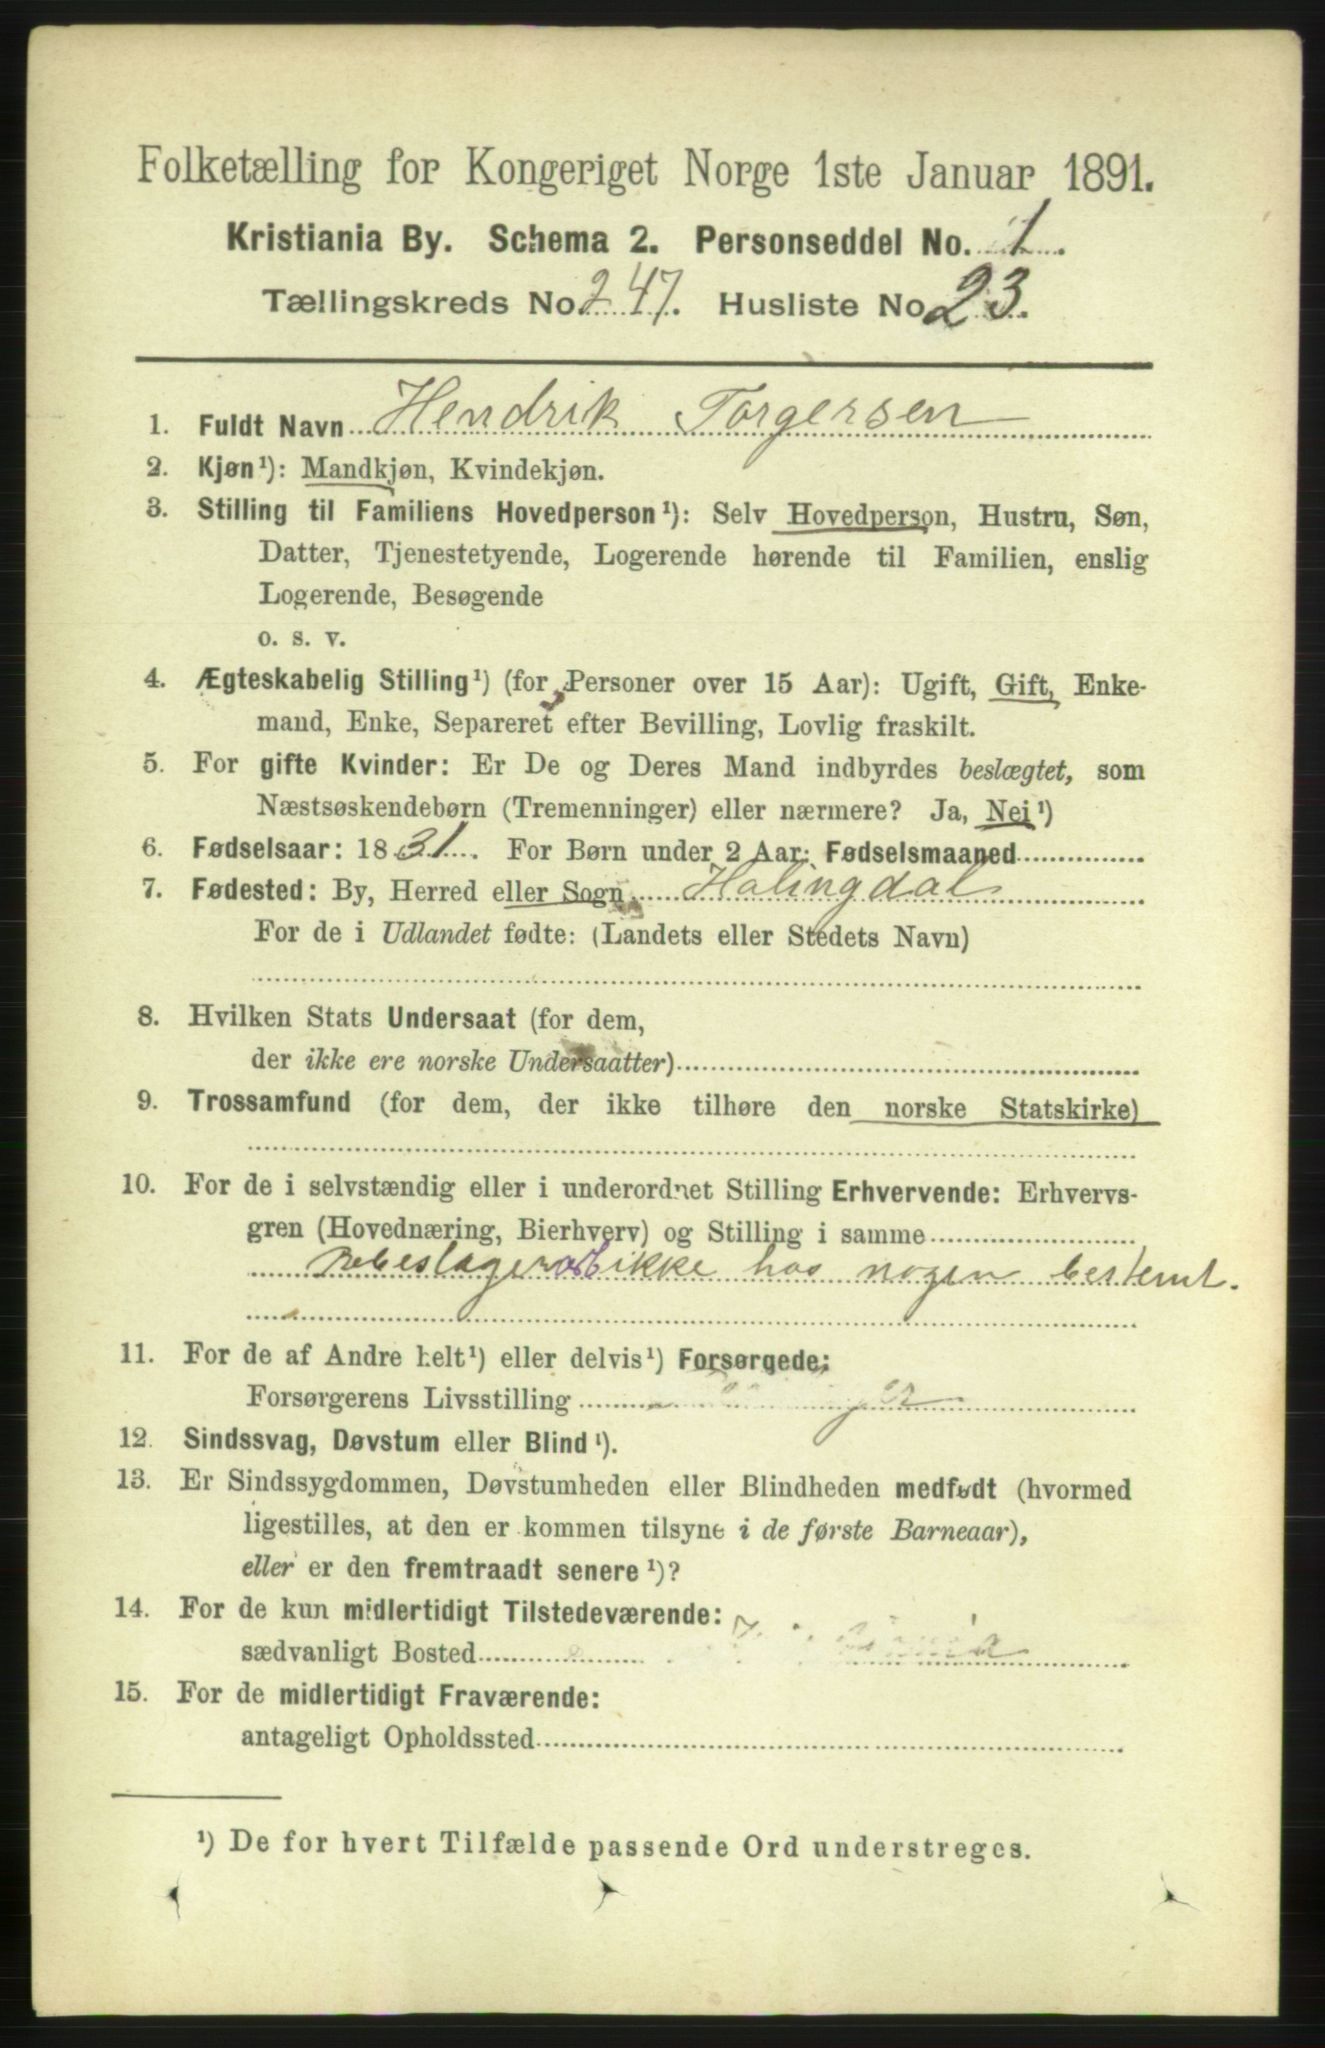 Folketælling for Kongeriget Norge 1ste Januar 1891.
Kristiania By. Schema 2. Personseddel No. 1.
Tællingskreds No. 247. Husliste No 23.
1. Fuldt Navn Hendrik Torgersen
2. Kjøn¹): Mandkjøn, Kvindekjøn.
3. Stilling til Familiens Hovedperson¹): Selv Hovedperson, Hustru, Søn,
Datter, Tjenestetyende, Logerende hørende til Familien, enslig
Logerende, Besøgende
o. s. v.
4. Ægteskabelig Stilling¹) (for Personer over 15 Aar): Ugift, Gift, Enke-
mand, Enke, Separeret efter Bevilling, Lovlig fraskilt.
5. For gifte Kvinder: Er De og Deres Mand indbyrdes beslægtet, som
Næstsøskendebørn (Tremenninger) eller nærmere? Ja, Nei¹)
6. Fødselsaar: 1831. For Børn under 2 Aar: Fødselsmaaned
7. Fødested: By, Herred eller Sogn Halingdal
For de i Udlandet fødte: (Landets eller Stedets Navn)
8. Hvilken Stats Undersaat (for dem,
der ikke ere norske Undersaatter)
9. Trossamfund (for dem, der ikke tilhøre den norske Statskirke)
10. For de i selvstændig eller i underordnet Stilling Erhvervende: Erhvervs-
gren (Hovednæring, Bierhverv) og Stilling i samme
Rebeslagerarb ikke hos nogen bestemt.
11. For de af Andre helt¹) eller delvis¹) Forsørgede:
Forsørgerens Livsstilling
12. Sindssvag, Døvstum eller Blind¹).
13. Er Sindssygdommen, Døvstumheden eller Blindheden medfødt (hvormed
ligestilles, at den er kommen tilsyne i de første Barneaar),
eller er den fremtraadt senere¹)?
14. For de kun midlertidigt Tilstedeværende:
sædvanligt Bosted
15. For de midlertidigt Fraværende:
antageligt Opholdssted
¹) De for hvert Tilfælde passende Ord understreges.